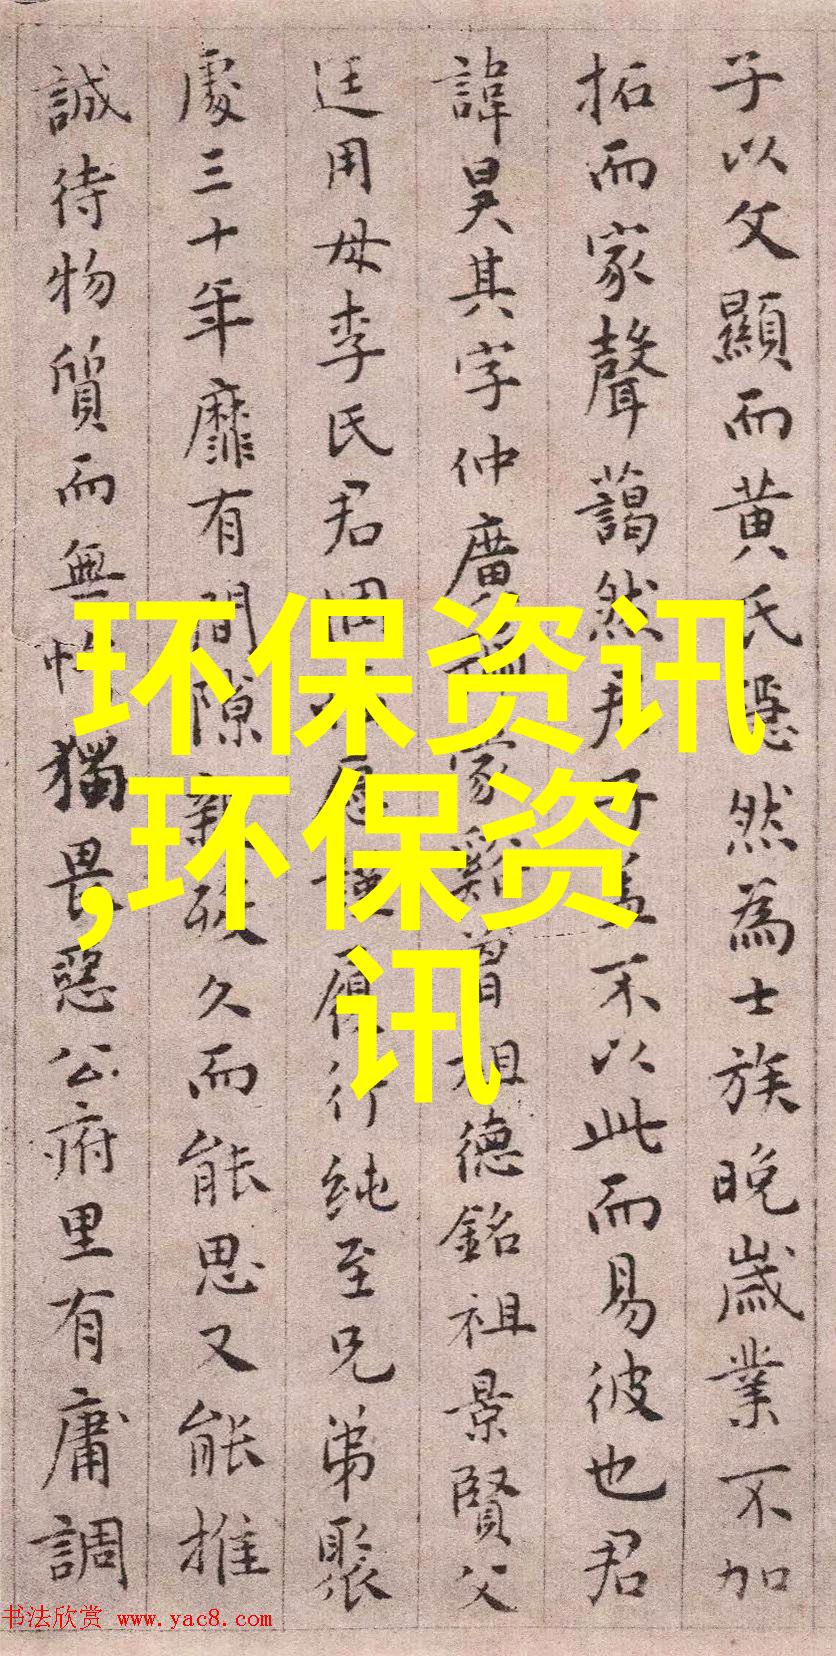 子以父顯而黄氏隱然為士族晚歲業不加
拓而家聲藹然君子蓋不以此而易彼也君
諱昊其字仲廣號家谿曾祖德銘祖景賢父
廷用母李氏君惇愿謹履行純至兄弟聚
處三十年靡有間隙新破久而能思又能推
誠待物質而無忤獨畏惡公府里有庸調
环保资讯
,环保资
讯
书法欣赏 www.yac8.com